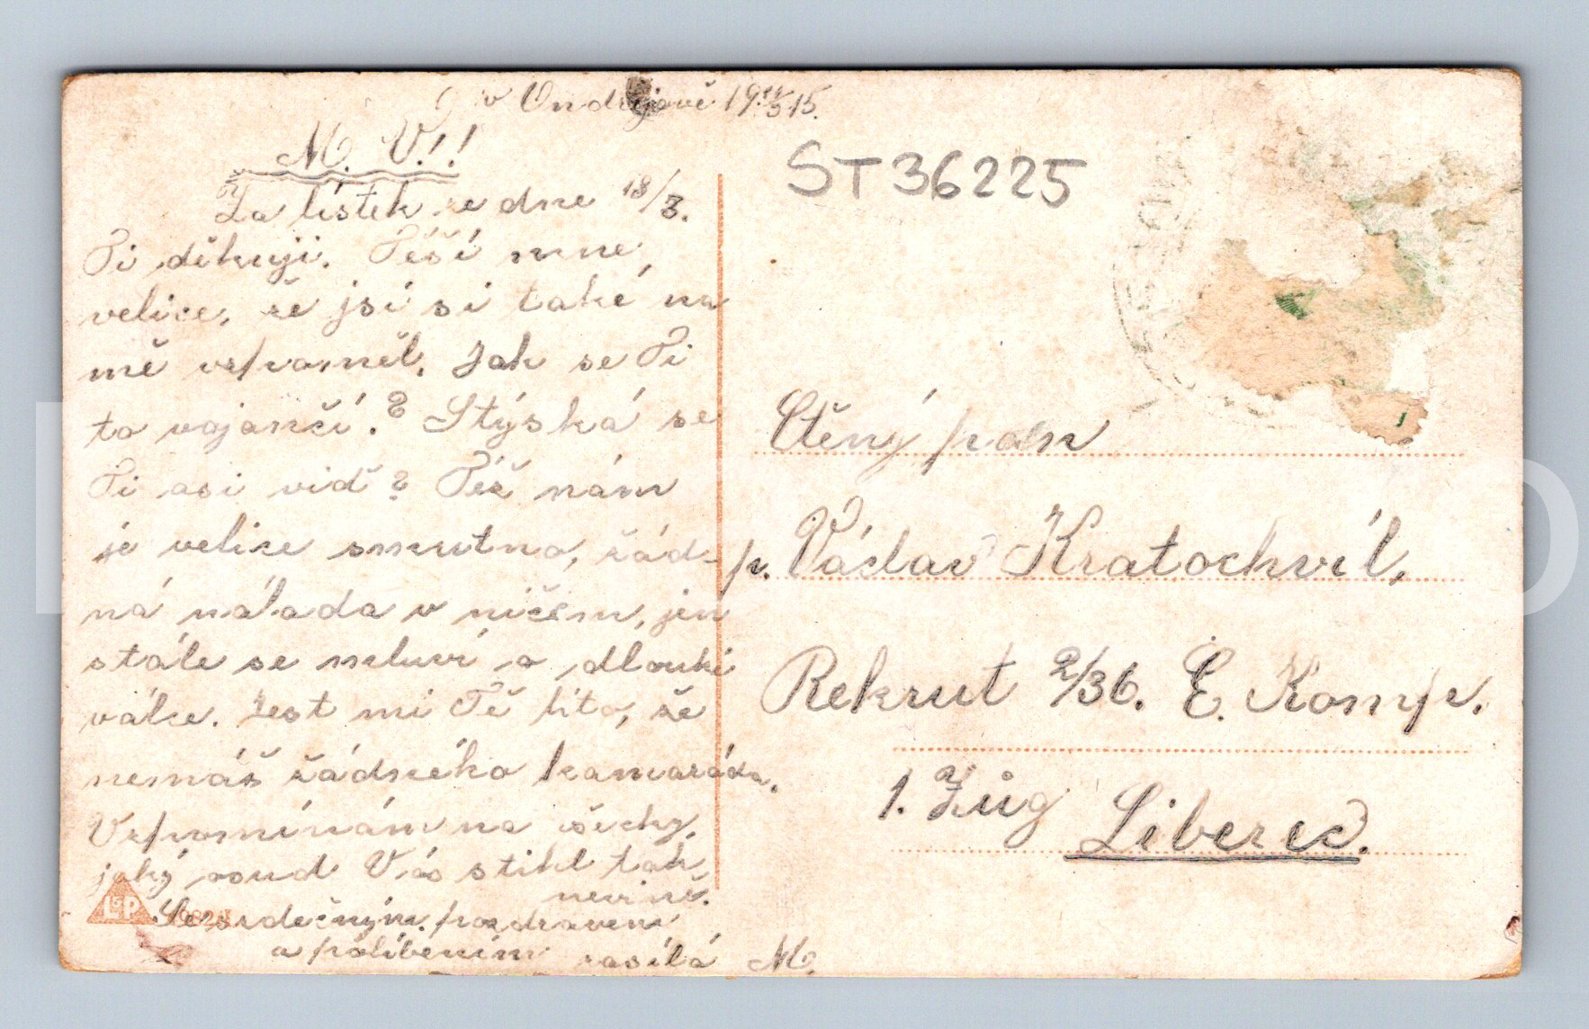 v Ondřejově 19 15.
M. V.!!
Za lístek ze dne 18/3.
Ti děkuji. Těší mne
velice, že jsi si také na
mě vzpomněl. Jak se Ti
to vojančí? Stýská se
Ti asi viď? Též nám
je velice smutno, žád-
ná nálada v ničem, jen
stále se mluví o dlouhé
válce. Jest mi Tě líto, že
nemáš žádného kamaráda.
Vzpomínám na všecky,
jaký osud Vás stihl tak
nevinně.
Se srdečným pozdravem
a políbením zasílá M.
ST36225
Ctěný pan
p. Václav Kratochvíl,
Rekrut 2/36. E. Komp.
1. Zug Liberec.
L&P